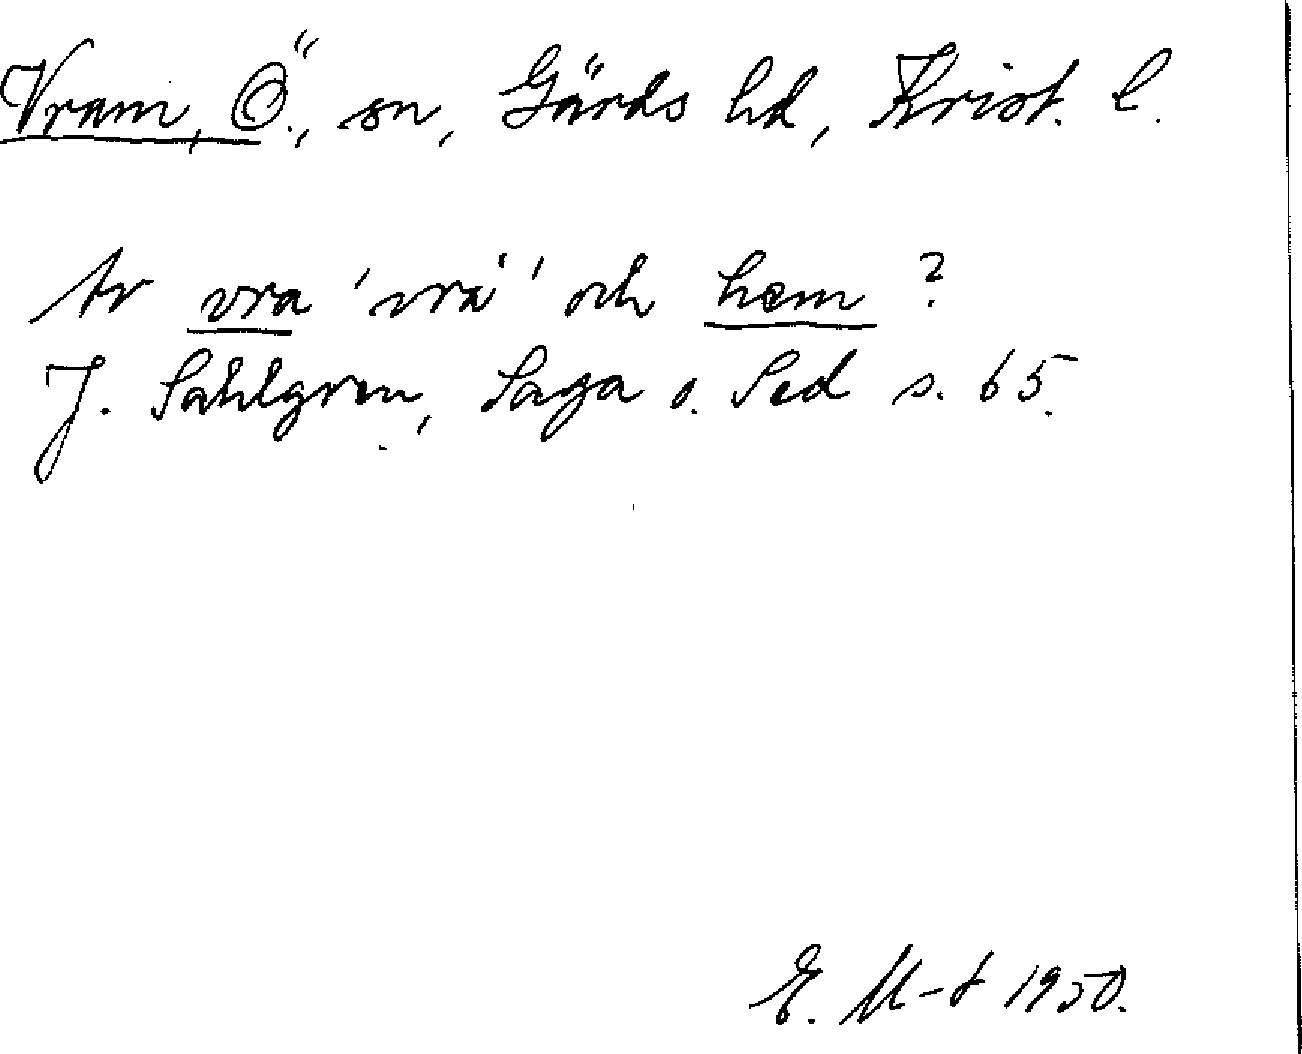 Vram, Ö., sn, Gärds hd, Krist. l.
Av vra 'vrå' och hem ?
J. Sahlgren, Saga o. Sed s. 65.
E. M-t 1950.